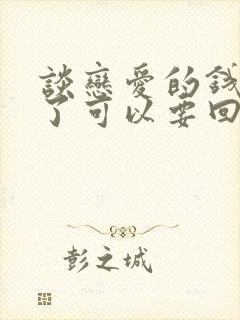 談戀愛的錢
了可以要回
彭之城